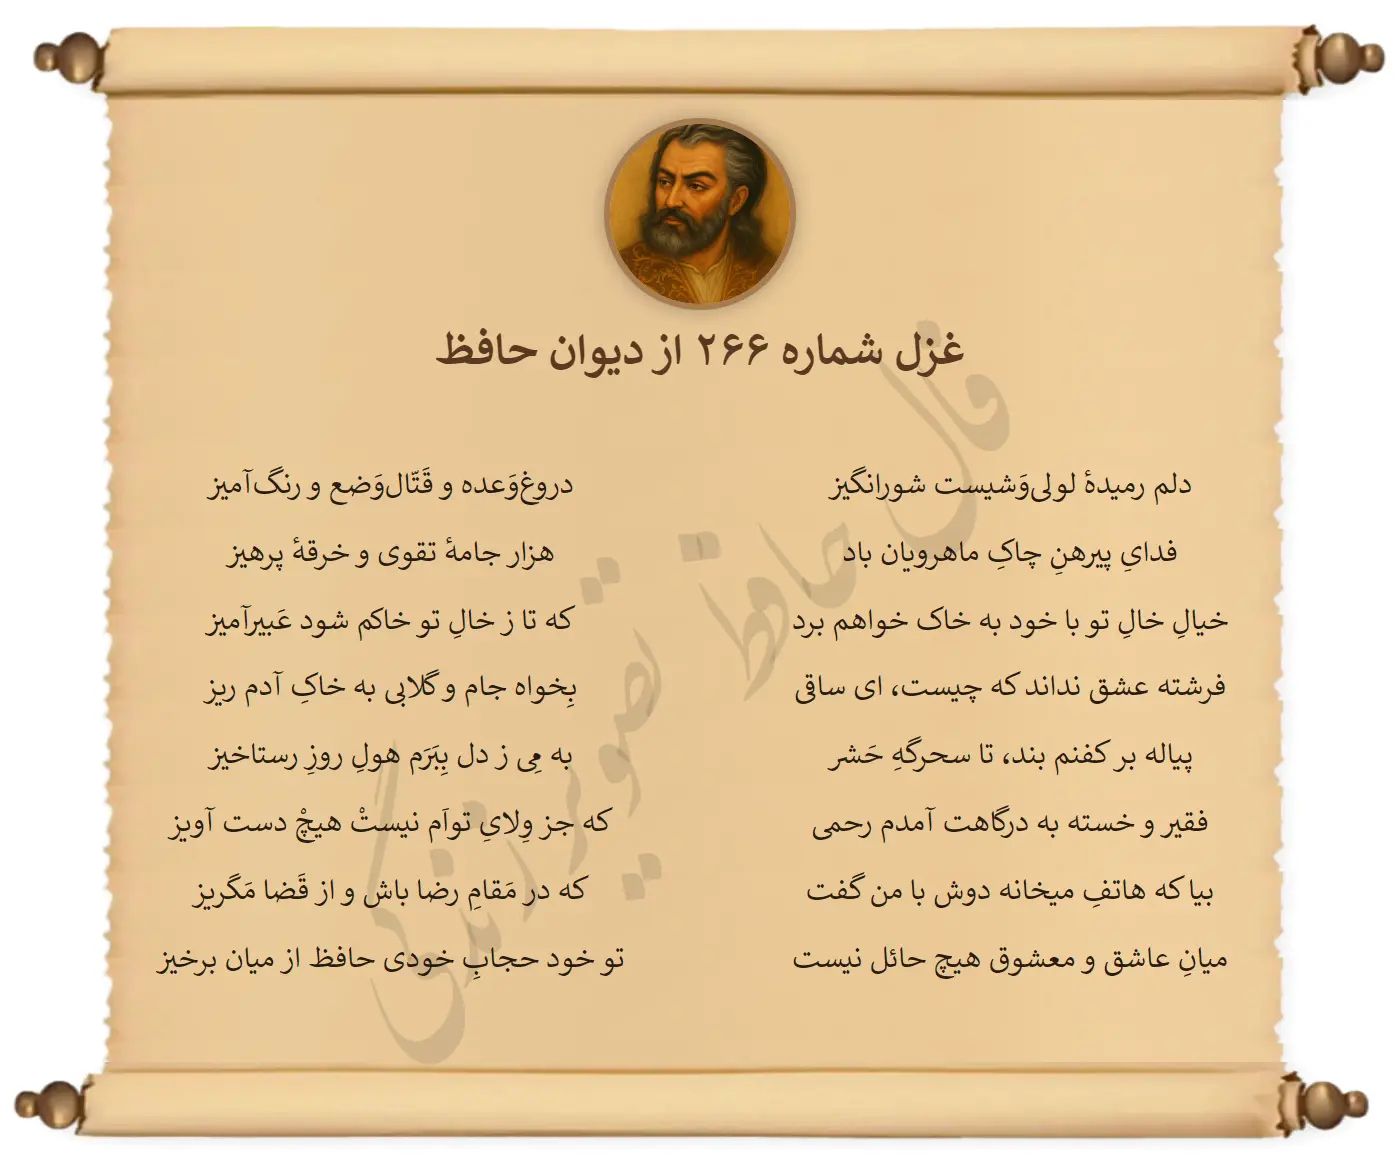 غزل شماره ۲۶۶ از دیوان حافظ
دلم رمیدهٔ لولی‌وَشیست شورانگیز
دروغ‌وَعده و قَتّال‌وَضع و رنگ‌آمیز
فدایِ پیرهنِ چاکِ ماهرویان باد
هزار جامهٔ تقوی و خرقهٔ پرهیز
خیالِ خالِ تو با خود به خاک خواهم برد
که تا ز خالِ تو خاکم شود عَبیرآمیز
فرشته عشق نداند که چیست، ای ساقی
بِخواه جام و گلابی به خاکِ آدم ریز
پیاله بر کفنم بند، تا سحرگهِ حَشر
به مِی ز دل بِبَرَم هولِ روزِ رستاخیز
فقیر و خسته به درگاهت آمدم رحمی
که جز وِلایِ تواَم نیستْ هیچْ دست آویز
بیا که هاتفِ میخانه دوش با من گفت
که در مَقامِ رضا باش و از قَضا مَگریز
میانِ عاشق و معشوق هیچ حائل نیست
تو خود حجابِ خودی حافظ از میان برخیز
فال حافظ تصویر زندگی